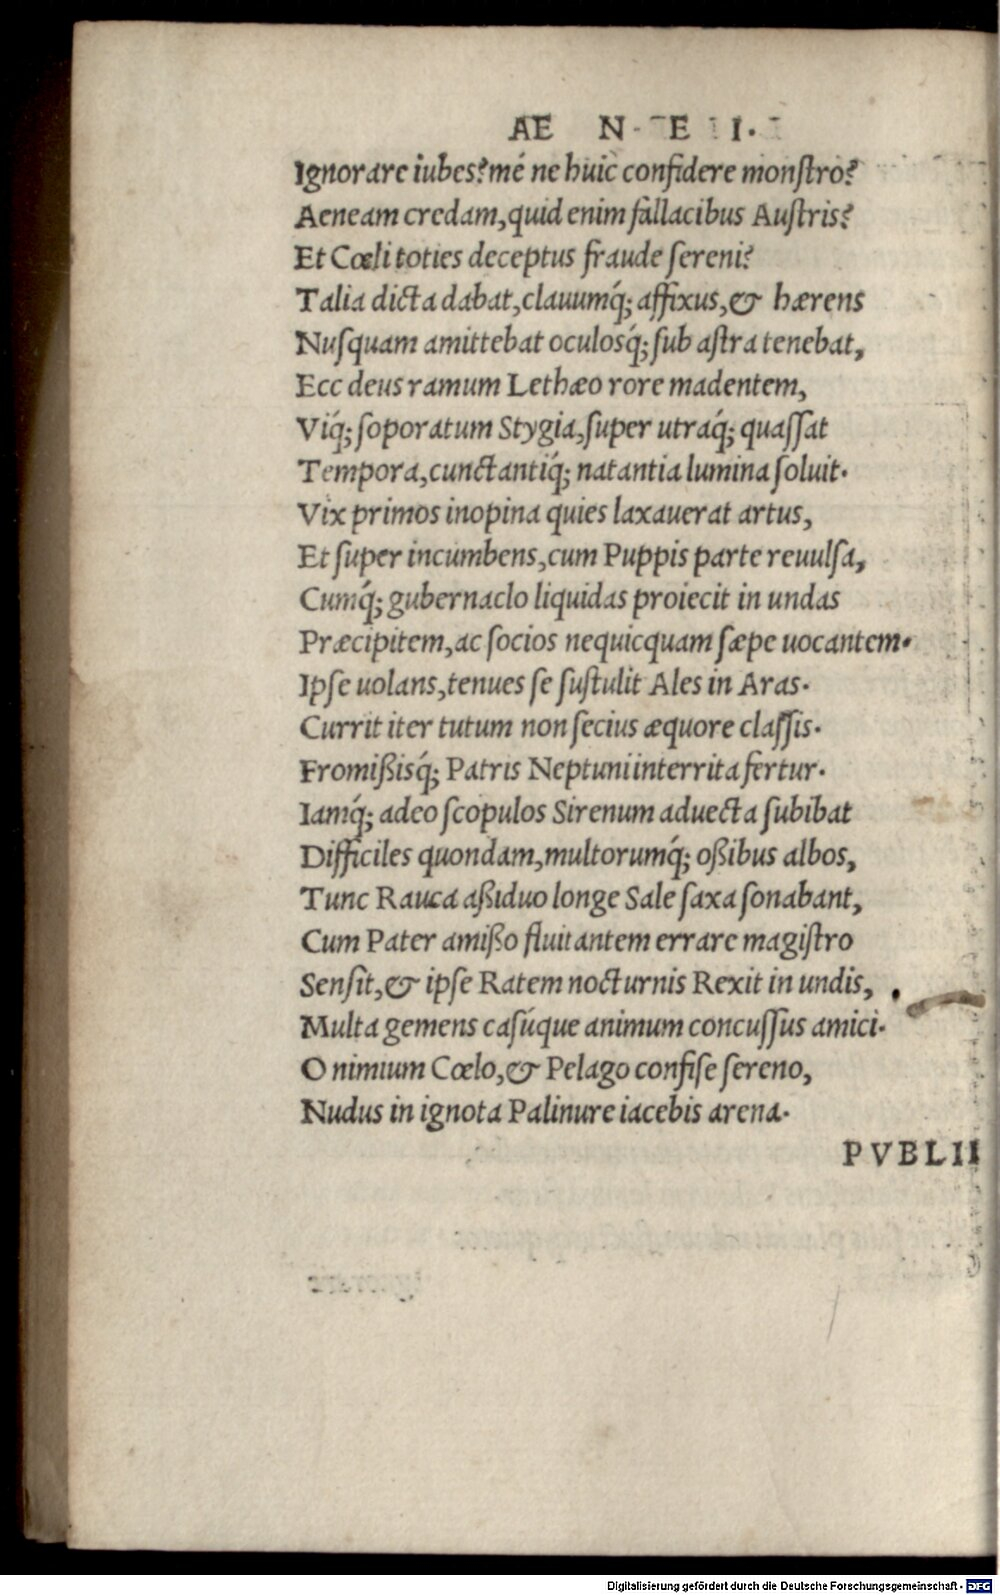 AE N E I.
Ignorare iubes? mé ne huic confidere monſtro?
Aeneam credam, quid enim fallacibus Auſtris?
Et Cœli toties deceptus fraude ſereni?
Talia dicta dabat, clauumq́; affixus, & hærens
Nuſquam amittebat oculosq́; ſub aſtra tenebat,
Ecc deus ramum Lethæo rore madentem,
Viq́; ſoporatum Stygia, ſuper utraq́; quaſſat
Tempora, cunctantiq́; natantia lumina ſoluit.
Vix primos inopina quies laxauerat artus,
Et ſuper incumbens, cum Puppis parte reuulſa,
Cumq́; gubernaclo liquidas proiecit in undas
Præcipitem, ac ſocios nequicquam ſæpe uocantem.
Ipſe uolans, tenues ſe ſuſtulit Ales in Aras.
Currit iter tutum non ſecius æquore claſſis.
Fromißisq́; Patris Neptuni interrita fertur.
Iamq́; adeo ſcopulos Sirenum aduecta ſubibat
Difficiles quondam, multorumq́; oßibus albos,
Tunc Rauca aßiduo longe Sale ſaxa ſonabant,
Cum Pater amißo fluitantem errare magiſtro
Senſit, & ipſe Ratem nocturnis Rexit in undis,
Multa gemens caſúque animum concuſſus amici.
O nimium Cœlo, & Pelago confiſe ſereno,
Nudus in ignota Palinure iacebis arena.
PVBLII
Digitalisierung gefördert durch die Deutsche Forschungsgemeinschaft - DFG